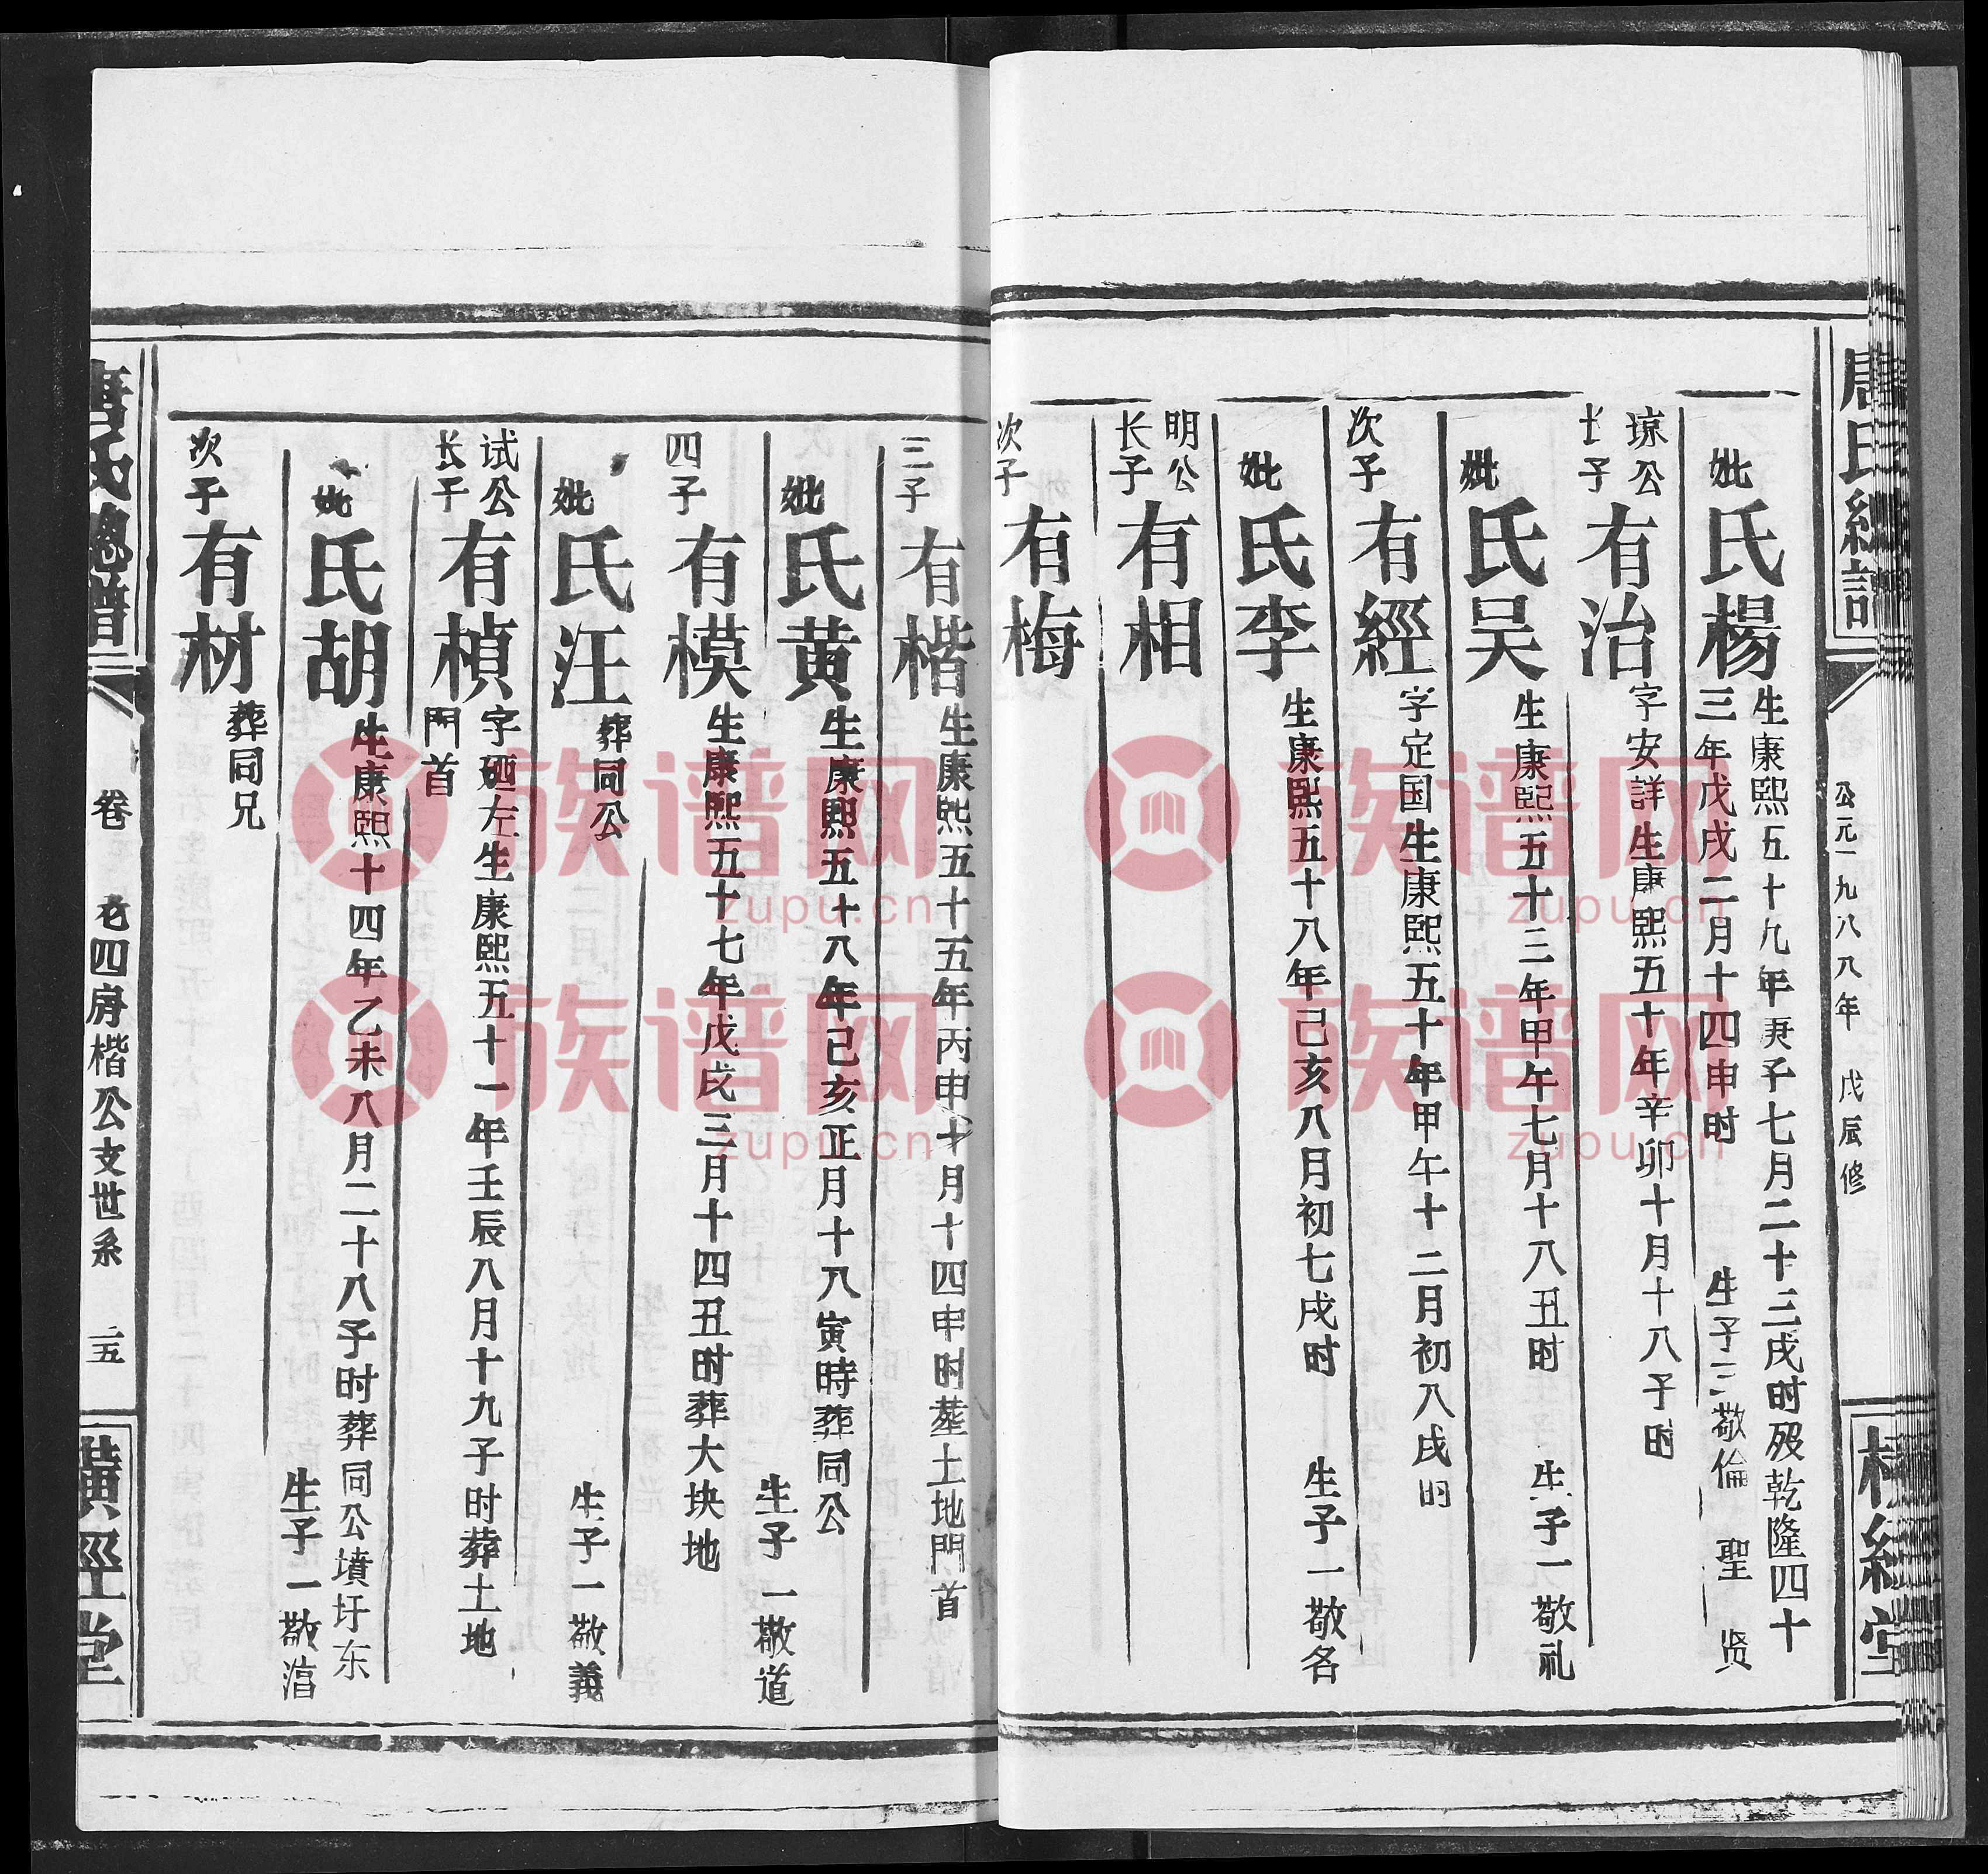 公元一九八八年 戊辰修
妣氏楊生康熙五十九年庚子七月二十三戌时殁乾隆四十
三年戊戌二月十四申时 生子三敬倫 聖 贤
琼公
长子有治字安詳生康熙五十年辛卯十月十八子时
妣氏吴生康熙五十三年甲午七月十八丑时 生子一敬礼
次子有經字定国生康熙五十年甲午十二月初八戌时
妣氏李生康熙五十八年己亥八月初七戌时 生子一敬名
明公
长子有相
次子有梅
三子有楷生康熙五十五年丙申十月十四申时葬土地門首
妣氏黄生康熙五十八年己亥正月十八寅時葬同公 生子一敬道
四子有模生康熙五十七年戊戌三月十四丑时葬大块地
妣氏汪葬同公 生子一敬義
试公
长子有楨字廼左生康熙五十一年壬辰八月十九子时葬土地
門首
妣氏胡生康熙十四年乙未八月二十八子时葬同公墳圩东 生子一敬
次子有材葬同兄
唐氏總譜 卷 老四房楷公支世系 二五 橫經堂
族谱网
zupu.cn
族谱网
zupu.cn
族谱网
zupu.cn
族谱网
zupu.cn